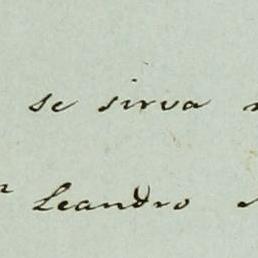 se sirva
Leandro